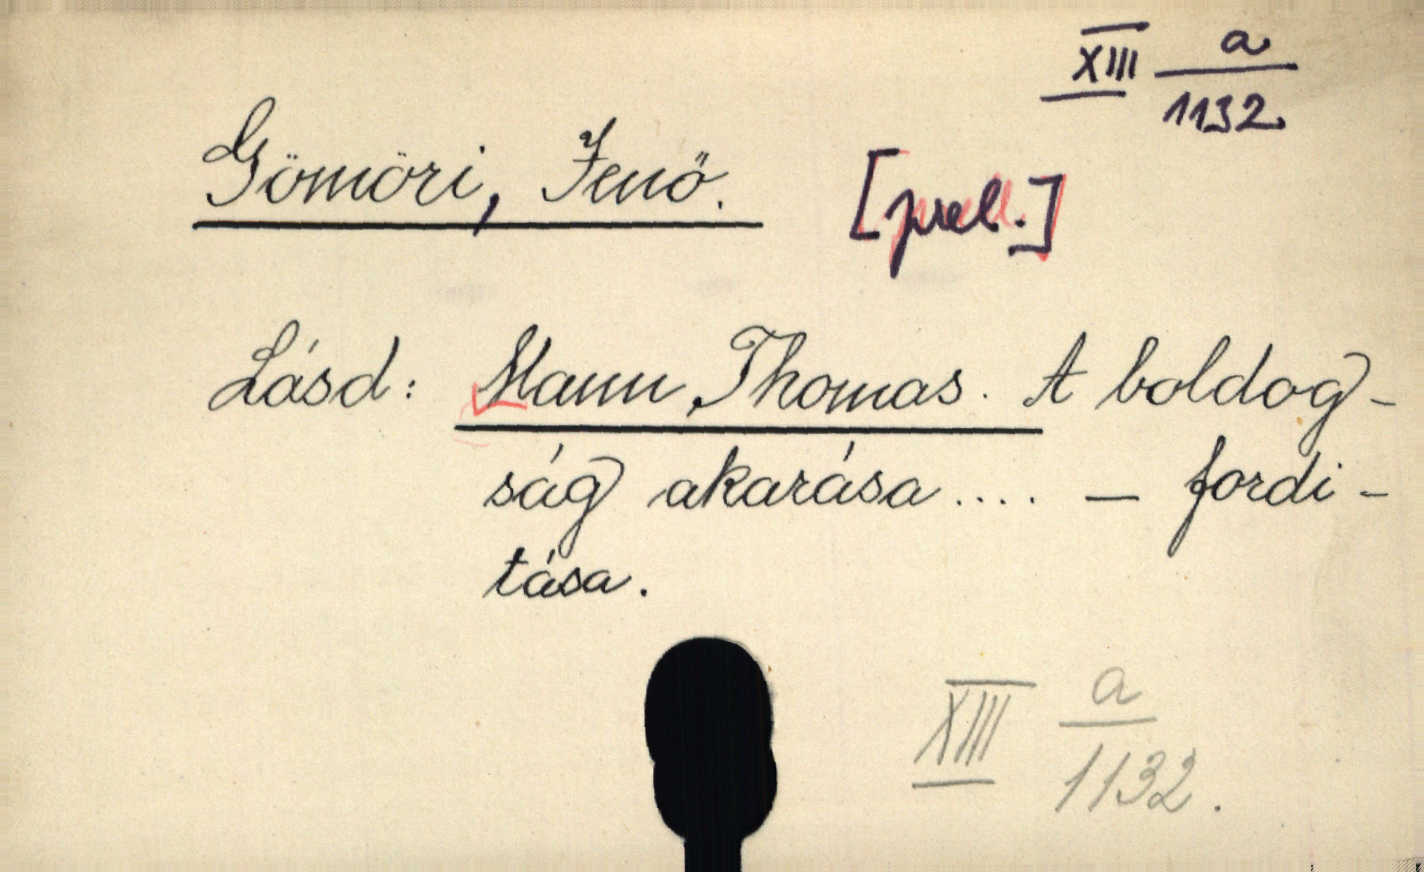 XIII a
1132
Gömöri, Jenő.
Lásd: Mann, Thomas. A boldog-
ság akarása .... — fordi-
tása.
XIII a
1132.